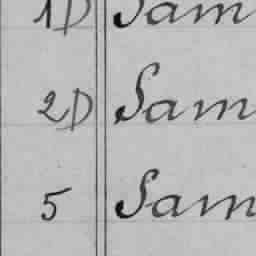 1D Sam
2D Sam
5 Sam